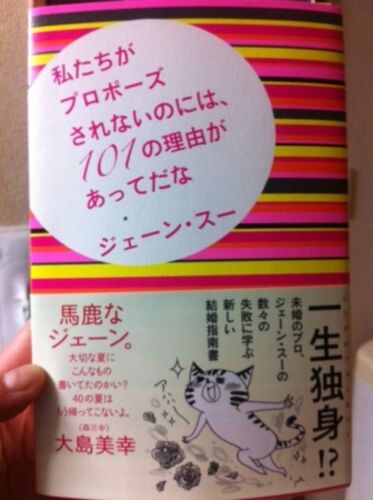 私たちが
プロポーズ
されないのには、
101の理由が
あってだな
ジェーン・スー
一生独身!?
未婚のプロ、
ジェーン・スーの
数々の
失敗に学ぶ
新しい
結婚指南書
馬鹿な
ジェーン。
大切な夏に
こんなもの
書いてたのかい?
40の夏は
もう帰ってこないよ。
(森三中)
大島美幸
アハハー